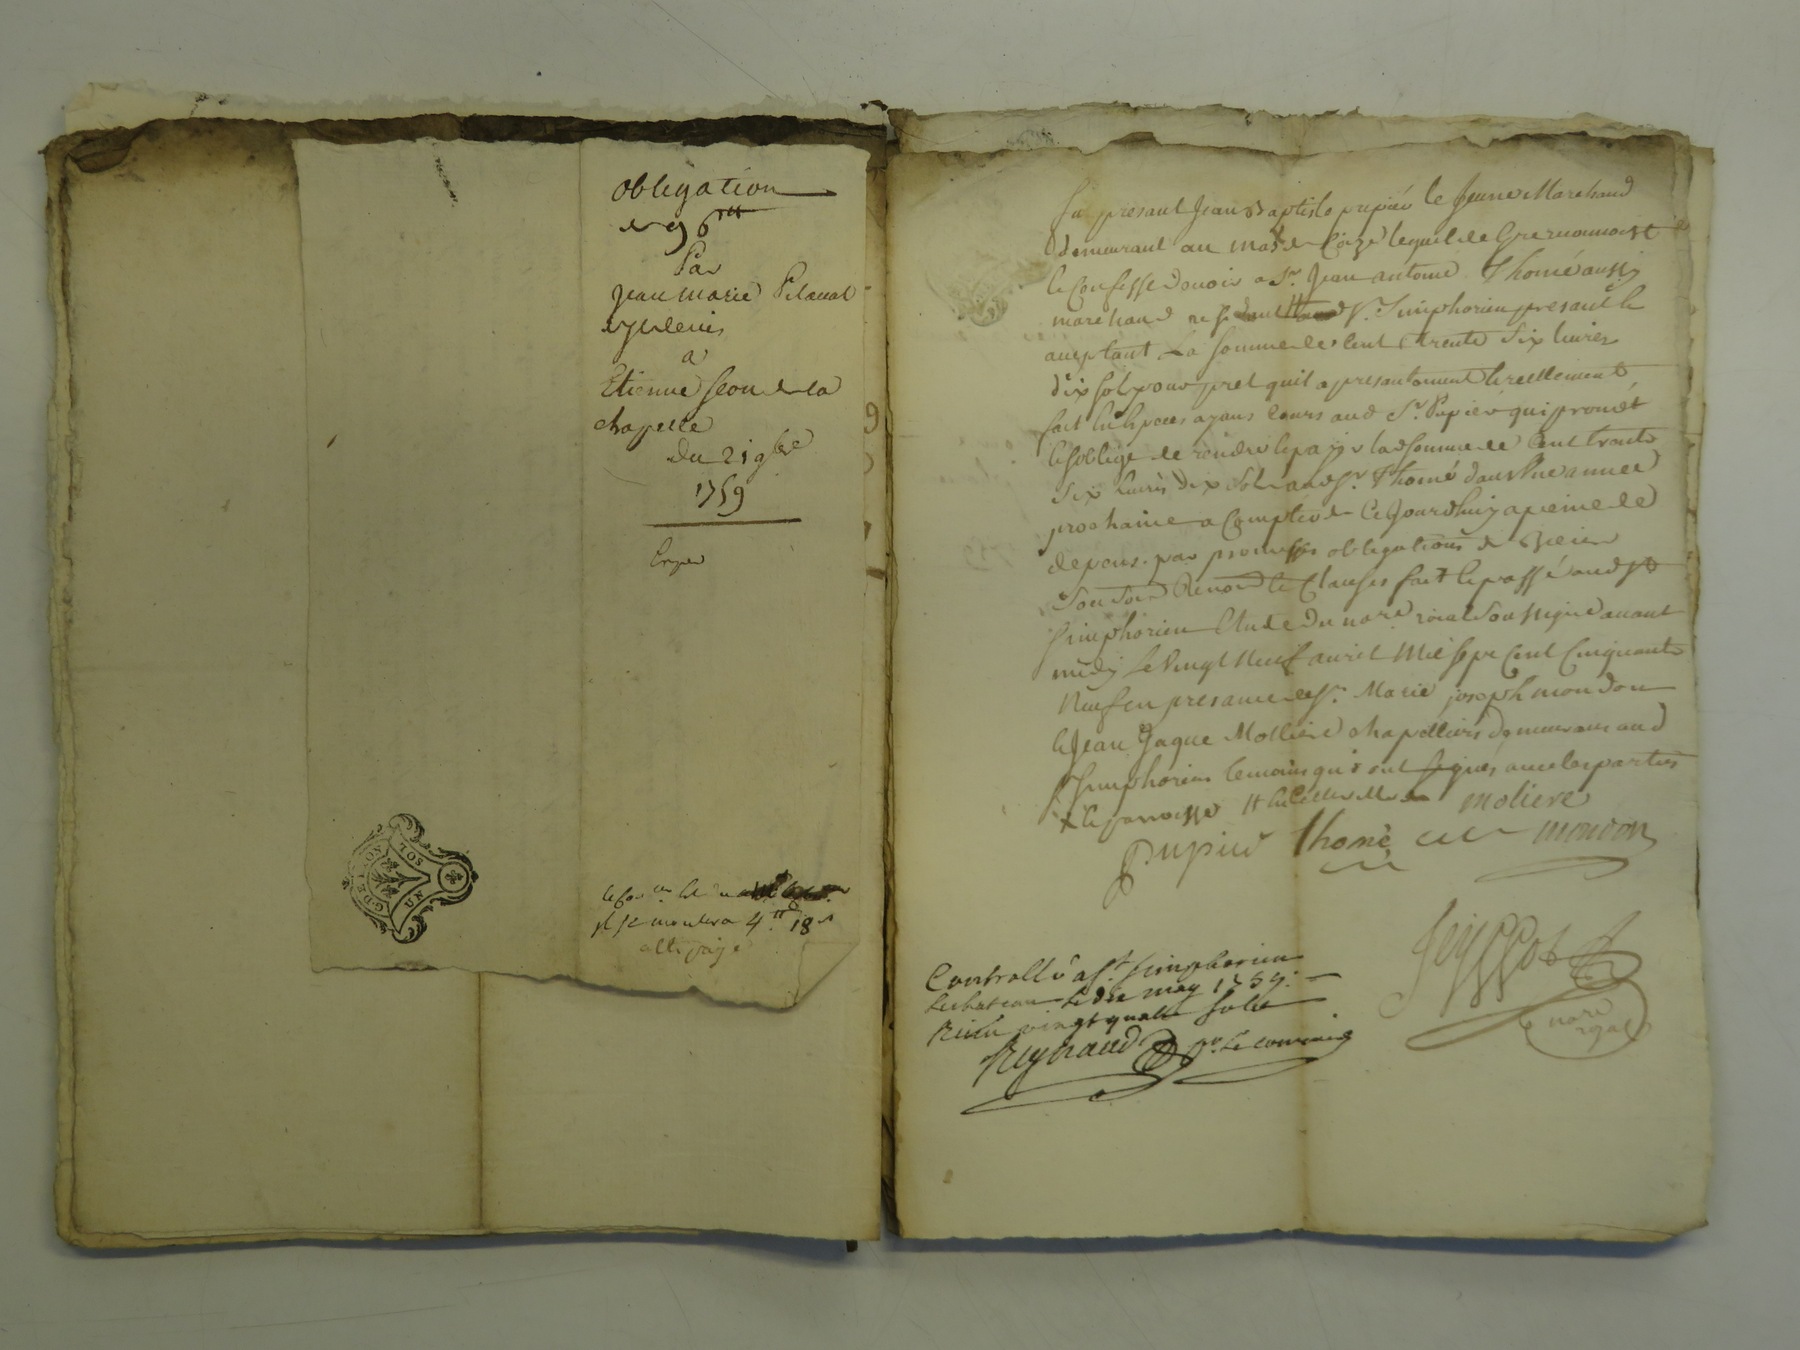 obligation
de 96tt
Par
Jean marie Pilaval
a
Etienne Jeon de la
chapelle
du 21 9bre
1759
G. DE LYON
UN SOL
4tt 18 s
Fut presant Jean Baptiste pupier le Jeune Marchand
demeurant au mas de lequel de Gre reconnoist
le Confesse devoir a Sr. Jean antoine Thomé aussy
marchand St. Simphorien presant &
aceptant La somme de Cent trente Six livres
dix sol pour pret quil a presantement & reellement
fait en Especes ayans cours aud Sr. Pupier qui promet
& Soblige de rendre & payer lad somme de Cent trente
Six livres dix Sols aud Sr. Thomé dans une année
prochaine a Compter de Ce Jourdhuy a peine de
depens. par promesses obligations de Biens
Renon & Clauses fait & passé aud St
Simphorien Etude du nore roial Soussigné avant
midy Le Vingt Neuf avril Mil Sept Cent Cinquante
Neuf en presance de Sr. Marie joseph mondon
& Jean Jaque Molliere chapelliers demeurans aud
St Simphorien temoins qui ont signés avec les parties
x & parroisse
moliere
pupier thomé mondon
Controllé a St. Simphorien
le chateau le dix may 1759.
Reçu vingt quatre sols
Reynaud pr. le commis
nore
royal